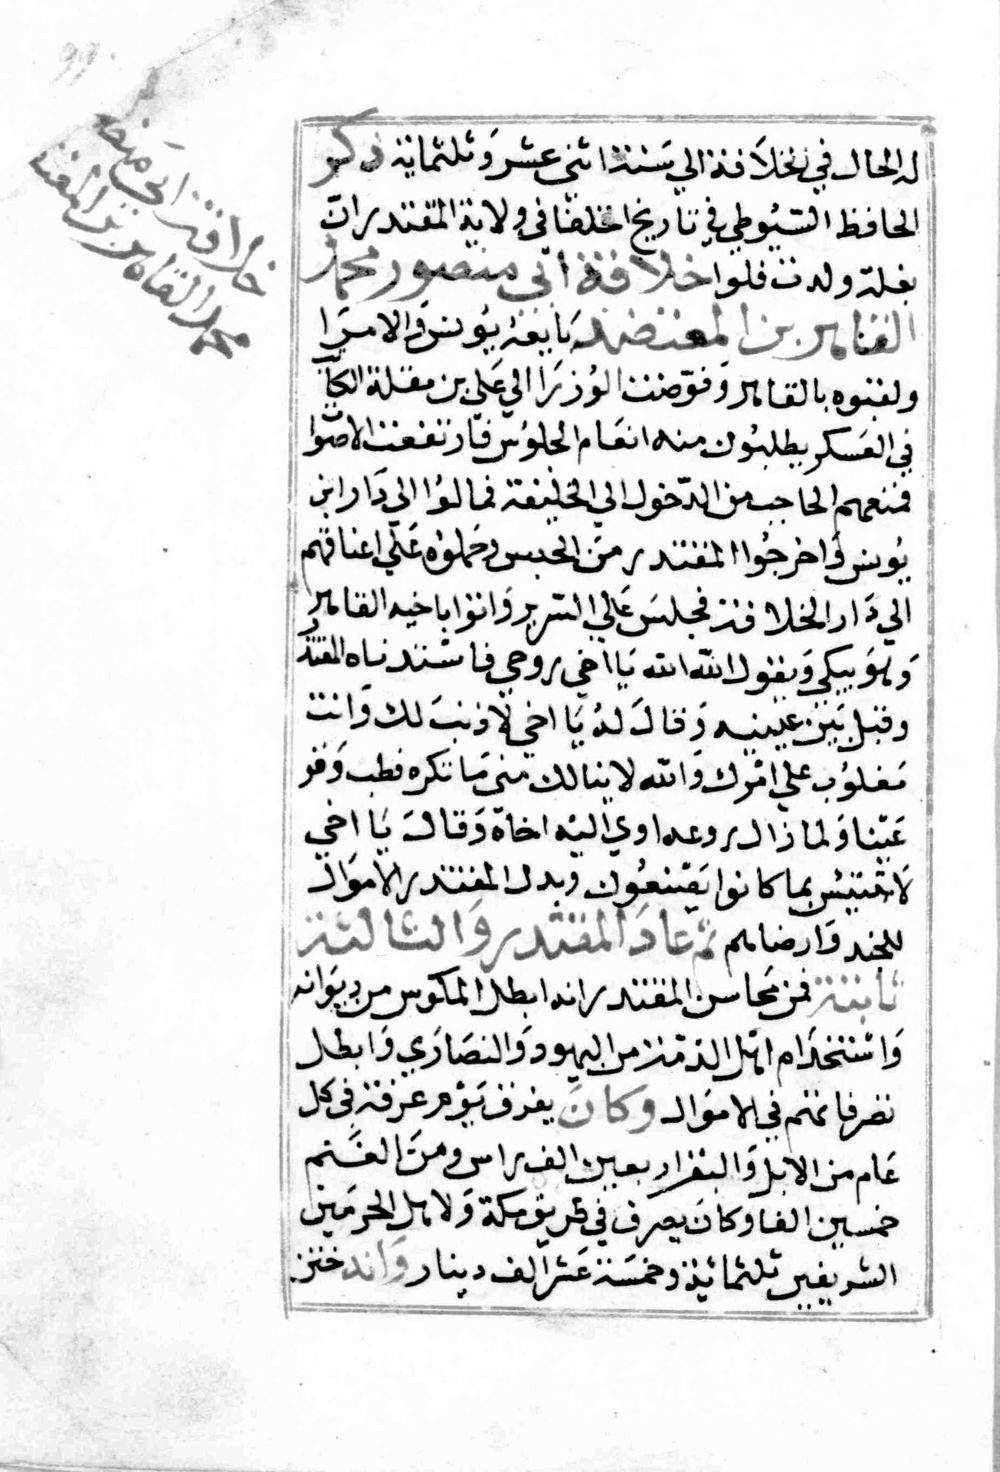 99
خلافة ابي منصور
محمد القاهر بن المعتضد
له الحال في الخلافة الي سنة اثني عشر وثلثمائة ذكر
الحافظ السيوطي في تاريخ الخلفا في ولاية المقتدر ان
بغلة ولدت فلوا خلافة ابي منصور محمد
القاهر بن المعتضد بايعه يونس والامرا
ولقبوه بالقاهر وفوضت الوزرا الي علي بن مقلة الكاتب
في العسكر يطلبون منه انعام الجلوس فارتفعت الاصوا
فمنعهم الحاجب من الدخول الي الخليفة فمالوا الي دار ابن
يونس واخرجوا المقتدر من الحبس وحملوه علي اعناقهم
الي دار الخلافة فجلس علي السرير واتوا باخيه القاهر
وهو يبكي ويقول الله الله يا اخي روحي فاستدناه المقتدر
وقبل بين عينيه وقال له يا اخي لا ذنب لك وانت
مغلوب علي امرك والله لا ينالك مني ما تكره فطب وقر
عينا ولما زال روعه اوي اليه اخاه وقال يا اخي
لا تبتئس بما كانوا يصنعون وبذل المقتدر الاموال
للجند وارضاهم ثم عاد المقتدر والثالثة
ثابتة فمن محاسن المقتدر انه ابطل المكوس من ديوانه
واستخدام اهل الذمة من اليهود والنصاري وابطل
تصرفاتهم في الاموال وكان يفرق يوم عرفة في كل
عام من الابل والبقر اربعين الف راس ومن الغنم
خمسين الفا وكان يصرف في طريق مكة ولاهل الحرمين
الشريفين ثلثمائة وخمسة عشر الف دينار وانه ختن